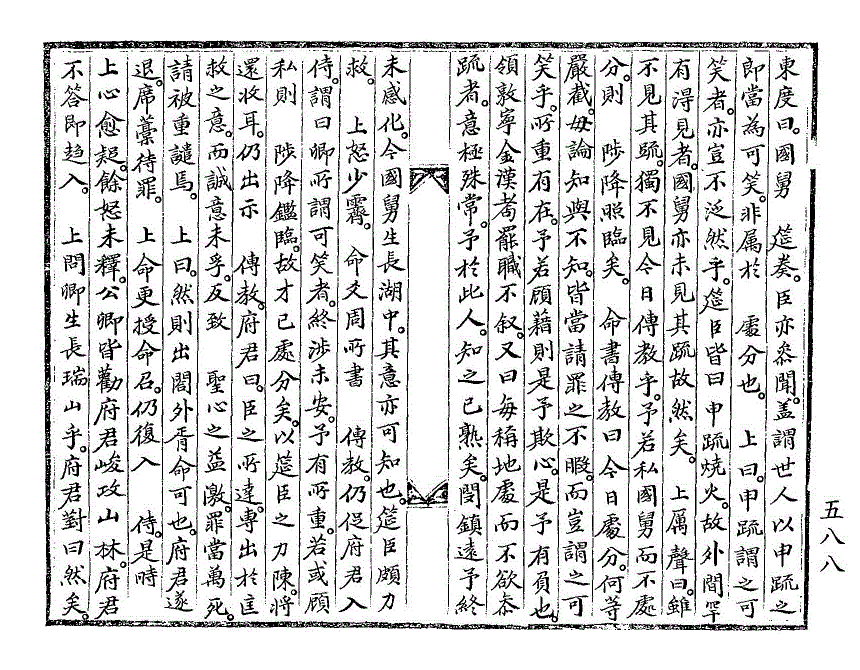 東度曰。國舅 筵奏。臣亦參聞。盖謂世人以申䟽之
即當為可笑。非属於 處分也。 上曰。申䟽謂之可
笑者。亦豈不泛然乎。筵臣皆曰申䟽燒火。故外間罕
有淂見者。國舅亦未見其䟽故然矣。 上厲聲曰。雖
不見其䟽。獨不見今日傳教乎。予若私國舅而不處
分。則 陟降照臨矣。 命書傳教曰今日處分。何等
嚴截。毋論知與不知。皆當請罪之不暇。而豈謂之可
笑乎。所重有在。予若顧藉則是予欺心。是予有負也。
領敦寧金漢耉罷職不叙。又曰每稱地處而不欲忝
䟽者。意極殊常。予於此人。知之已熟矣。閔鎮遠予終
未感化。今國舅生長湖中。其意亦可知也。筵臣頗力
救。 上怒少霽。 命爻周所書 傳教。仍促府君入
侍。謂曰卿所謂可笑者。終涉未安。予有所重。若或顧
私則 陟降鑑臨。故才已處分矣。以筵臣之力陳。將
還收耳。仍出示 傳教。府君曰。臣之所達。專出於匡
救之意。而誠意未孚。反致 聖心之益激。罪當萬死。
請被重譴焉。 上曰。然則出閤外胥命可也。府君遂
退。席藁待罪。 上命更授命召。仍復入 侍。是時
上心愈疑。餘怒未釋。公卿皆勸府君峻攻山林。府君
不答即趋入。 上問卿生長瑞山乎。府君對曰然矣。
五八八